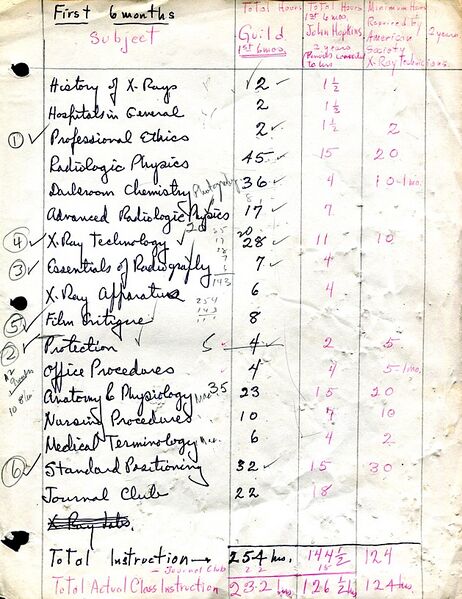 First 6 months
Subject
Total Hours
Guild
1st 6 mos.
Total Hours
1st 6 mos.
John Hopkins
2 years
Minimum Hours
Required by
American
Society
X-Ray Technicians.
2 years
History of X-Rays 2 1½
Hospitals in General 2 1½
① Professional Ethics 2 1½ 2
Radiologic Physics 45 15 20
Darkroom Chemistry Photography 36 4 10-1mo.
Advanced Radiologic Physics 17 7
④ X-Ray Technology 20 28 11 10
③ Essentials of Radiography 7 4
143
X-Ray Apparature 6 4
254
143
⑤ Film Critique 8
② Protection 5 4 2 5
Office Procedures 4 4 5-1mo.
Anatomy & Physiology 35 23 15 20
Nursing Procedures 10 7 10
Medical Terminology 6 4 2
⑥ Standard Positioning 32 15 30
Journal Club 22 18
X Ray Labs.
Total Instruction → 254 hrs. 144½ 124
- Journal Club 22 18
Total Actual Class Instruction 232 hrs. 126½ hrs 124 hrs.